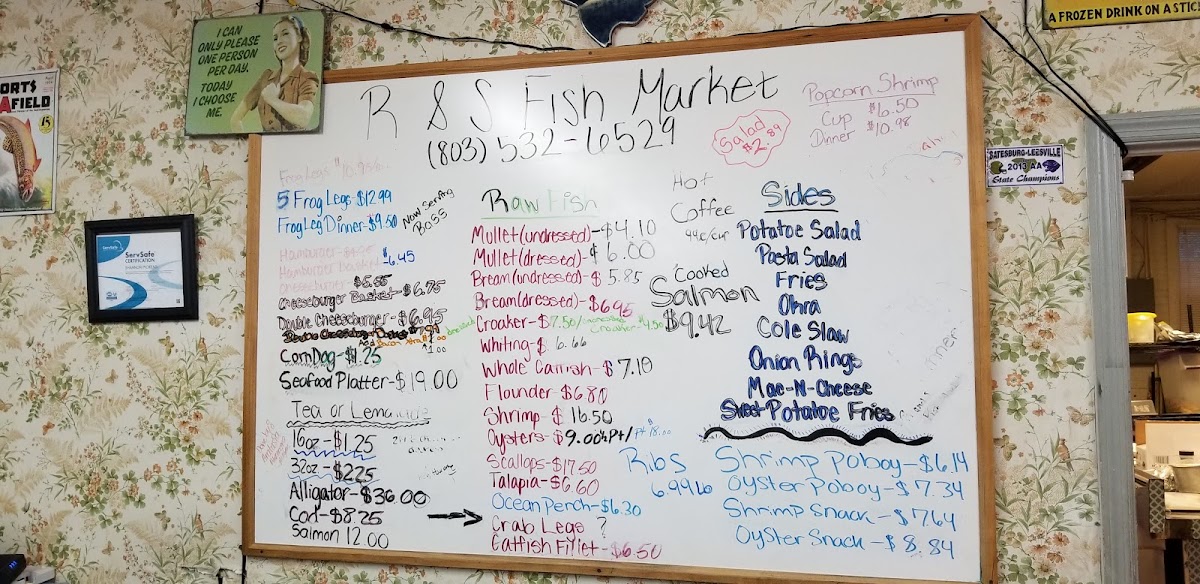 I CAN
ONLY PLEASE
ONE PERSON
PER DAY.
TODAY
I CHOOSE
ME.
A FROZEN DRINK ON A STIC
ORTS
AFIELD
ServSafe
CERTIFICATION
BATESBURG-LEESVILLE
2013 AA
State Champions
R & S Fish Market
(803) 532-6529
Salad
$2.89
Popcorn Shrimp
Cup $6.50
Dinner $10.98
Frog Legs
5 Frog Legs $12.99
Frog Leg Dinner-$9.50
Now Serving
Bass
Hamburger
Hamburger Basket $6.45
Cheeseburger $5.55
Cheeseburger Basket-$6.75
Double Cheeseburger-$6.95
Add Bacon
Corn Dog-$1.25
Seafood Platter-$19.00
Tea or Lemonade
16oz-$1.25
32oz-$2.25
Alligator-$36.00
Cod-$8.25
Salmon 12.00
Raw Fish
Mullet(undressed)-$4.10
Mullet(dressed)-$6.00
Bream(undressed)-$5.85
Bream(dressed)-$6.95
Croaker-$7.50/
Croaker-$4.50
Whiting-$6.66
Whole Catfish-$7.10
Flounder-$6.80
Shrimp-$16.50
Oysters-$9.00½Pt/Pt 18.00
Scallops-$17.50
Talapia-$6.60
Ocean Perch-$6.30
Crab Legs ?
Catfish Fillet-$6.50
Hot
Coffee
94¢/cup
Cooked
Salmon
$9.42
Sides
Potatoe Salad
Pasta Salad
Fries
Okra
Cole Slaw
Onion Rings
Mac-N-Cheese
Sweet Potatoe Fries
Ribs
6.99 lb
Shrimp Poboy-$6.14
Oyster Poboy-$7.34
Shrimp Snack-$7.64
Oyster Snack-$8.84